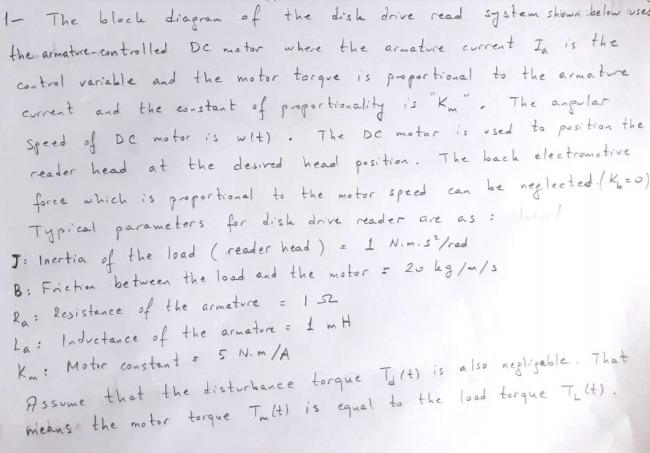 1- The block diagram of the disk drive read system shown below uses
the armature-controlled DC motor where the armature current Ia is the
control variable and the motor torque is proportional to the armature
current and the constant of proportionality is "Km". The angular
speed of DC motor is w(t). The DC motor is used to position the
reader head at the desired head position. The back electromotive
force which is proportional to the motor speed can be neglected. (Kb=0)
Typical parameters for disk drive reader are as :
J: Inertia of the load (reader head) = 1 N.m.s²/rad
B: Friction between the load and the motor = 20 kg/m/s
Ra: Resistance of the armature = 1 Ω
La: Inductance of the armature = 1 mH
Km: Motor constant = 5 N.m/A
Assume that the disturbance torque Td(t) is also negligable. That
means the motor torque Tm(t) is equal to the load torque TL(t).